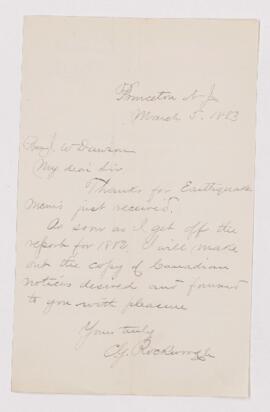 Princeton N J
March 5. 1883
J. W Dawson
My dear Sir
Thanks for Earthquake
Mem's just received.
As soon as I get off the
report for 1882. I will make
out the copy of Canadian
notices desired and forward
to you with pleasure
Yours truly
C. G. Rockwood Jr